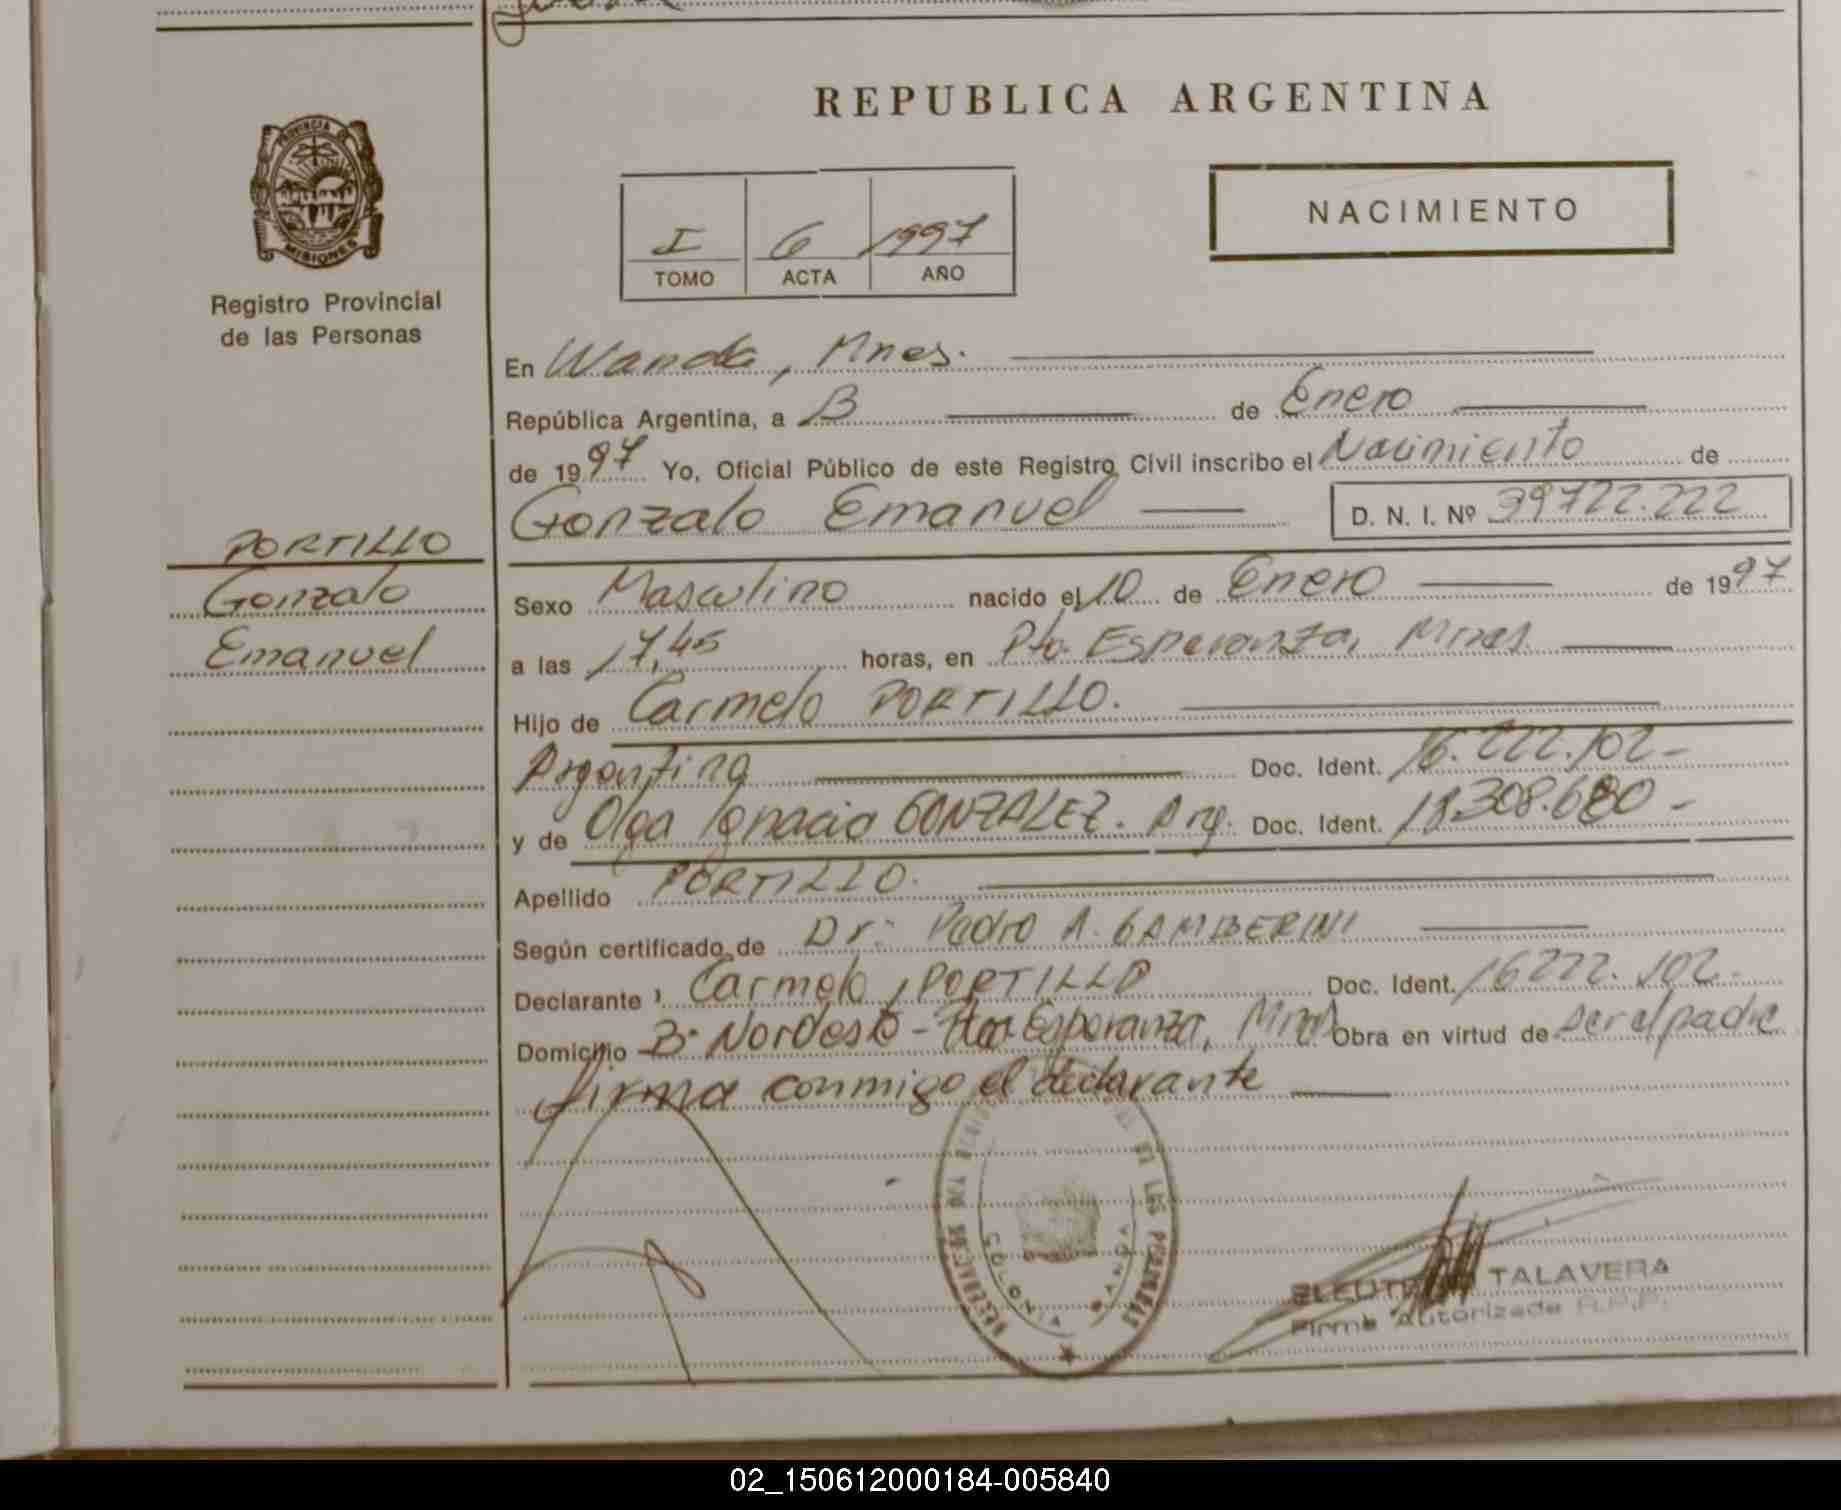 REPUBLICA ARGENTINA
PROVINCIA DE
MISIONES
Registro Provincial
de las Personas
I 6 1997
TOMO ACTA AÑO
NACIMIENTO
En Wanda, Mnes.
República Argentina, a 13 de Enero
de 1997 Yo, Oficial Público de este Registro Civil inscribo el Nacimiento de
Gonzalo Emanuel D. N. I. Nº 39722.222
PORTILLO
Gonzalo
Emanuel
Sexo Masculino nacido el 10 de Enero de 1997
a las 17,45 horas, en Pto. Esperanza, Mnes.
Hijo de Carmelo PORTILLO.
Argentina Doc. Ident. 16.222.102-
y de Olga Ignacia GONZALEZ. Arg. Doc. Ident. 18.308.680-
Apellido PORTILLO.
Según certificado de Dr: Pedro A. GAMBERINI
Declarante Carmelo PORTILLO Doc. Ident. 16222.102-
Domicilio Bº Nordeste - Pto. Esperanza, Mnes Obra en virtud de ser el padre
firma conmigo el declarante
DE LAS PERSONAS
COLONIA WANDA
TALAVERA
Firma Autorizada R.P.P.
02_150612000184-005840